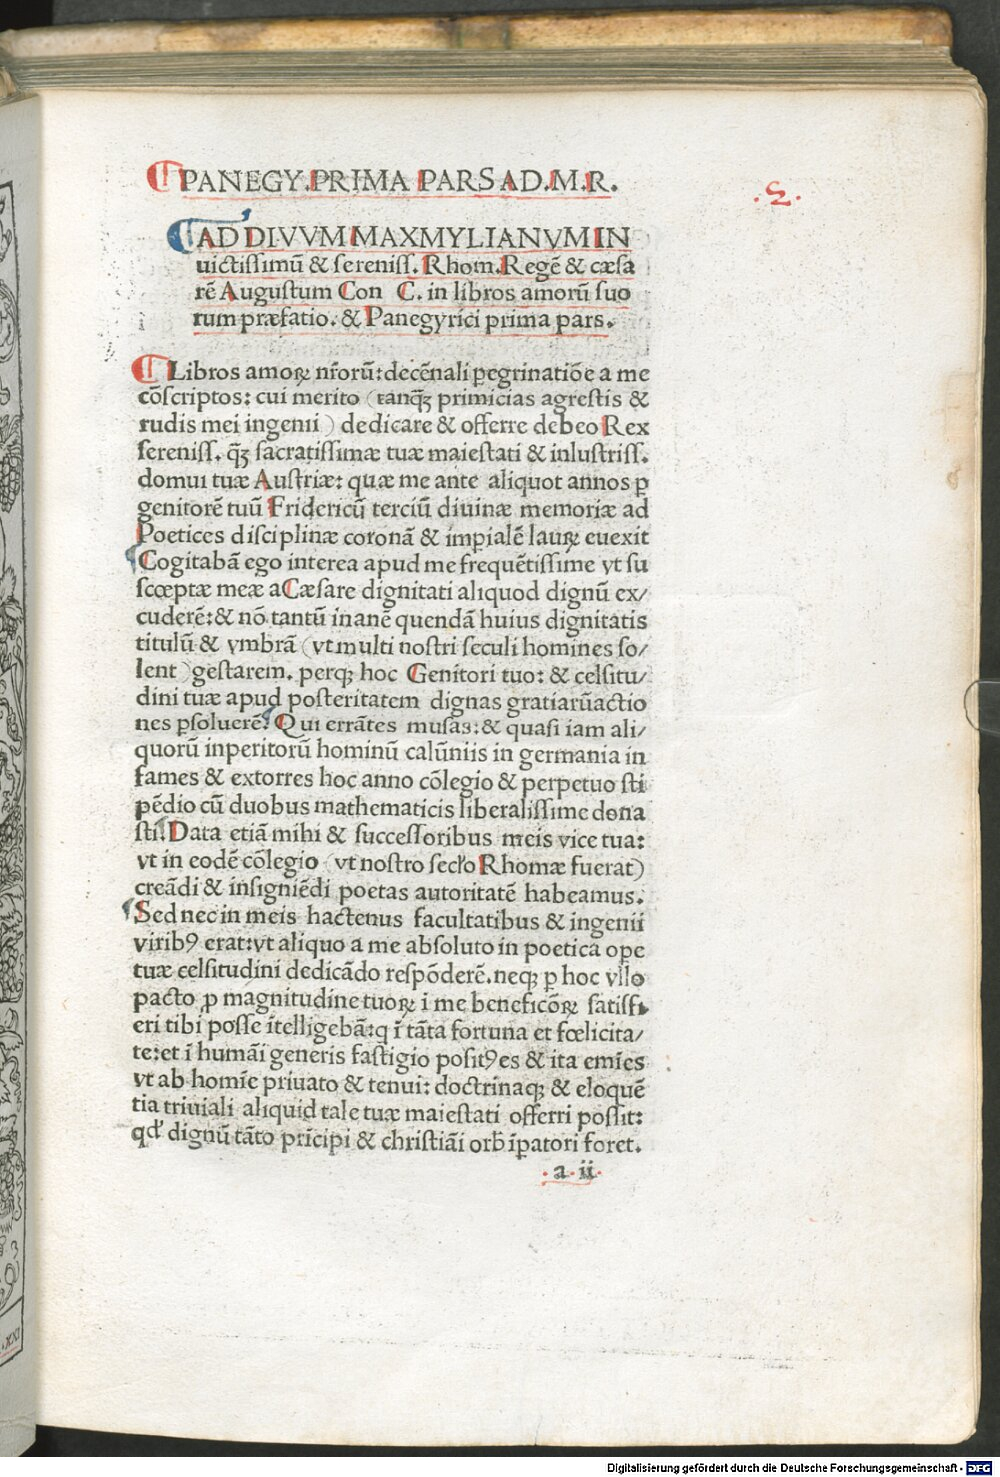 PANEGY.PRIMA PARS AD.M.R.
.2.
AD DIVVM MAXMYLIANVM IN
uictissimū & sereniss. Rhom. Regē & cæsa
rē Augustum Con C. in libros amorū suo
rum præfatio. & Panegyrici prima pars.
Libros amoꝝ nr̄orū: decēnali ꝑegrinatiōe a me
cōscriptos: cui merito (tanqꝫ primicias agrestis &
rudis mei ingenii) dedicare & offerre debeo Rex
sereniss. qꝫ sacratissimæ tuæ maiestati & inlustriss.
domui tuæ Austriæ: quæ me ante aliquot annos ꝑ
genitorē tuū Fridericū terciū diuinæ memoriæ ad
Poetices disciplinæ coronā & imꝑialē lauꝝ euexit
Cogitabā ego interea apud me frequētissime vt su
scœptæ meæ a Cæsare dignitati aliquod dignū ex/
cuderē: & nō tantū inanē quendā huius dignitatis
titulū & vmbrā (vt multi nostri seculi homines so/
lent) gestarem. perqꝫ hoc Genitori tuo: & celsitu/
dini tuæ apud posteritatem dignas gratiarūactio
nes ꝑsoluerē. Qui errātes musas: & quasi iam ali/
quorū inperitorū hominū calūniis in germania in
fames & extorres hoc anno cōlegio & perpetuo sti
pēdio cū duobus mathematicis liberalissime dona
sti. Data etiā mihi & successoribus meis vice tua:
vt in eodē cōlegio (vt nostro secło Rhomæ fuerat)
creādi & insigniēdi poetas autoritatē habeamus.
Sed nec in meis hactenus facultatibus & ingenii
viribꝰ erat: vt aliquo a me absoluto in poetica ope
tuæ celsitudini dedicādo respōderē. neqꝫ ꝑ hoc vllo
pacto ꝓ magnitudine tuoꝝ ī me beneficōꝝ satisfi
eri tibi posse ītelligebā: q ī tāta fortuna et fœlicita/
te: et ī humāi generis fastigio positꝰ es & ita emīes
vt ab homīe priuato & tenui: doctrinaqꝫ & eloquē
tia triuiali aliquid tale tuæ maiestati offerri possit:
qd' dignū tāto prīcipi & christiāi orb̄ īꝑatori foret.
.a.ii.
.XXI
Digitalisierung gefördert durch die Deutsche Forschungsgemeinschaft - DFG